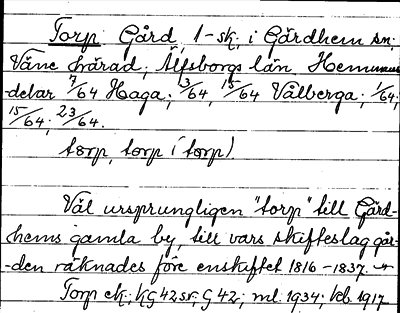 Torp Gård, 1-sk, i Gärdhem sn;
Väne härad, Älfsborgs län Hemmans
delar 7/64 Haga; 13/64, 15/64 Vålberga, 1/64;
15/64; 23/64.
torp, torp (torp)
Väl ursprungligen "torp" till Gärd-
hems gamla by, till vars skifteslag går-
-den räknades före enskiftet 1816-1837.
Torp ek; KG 42 sr; G 42; ml. 1934; kb. 1917